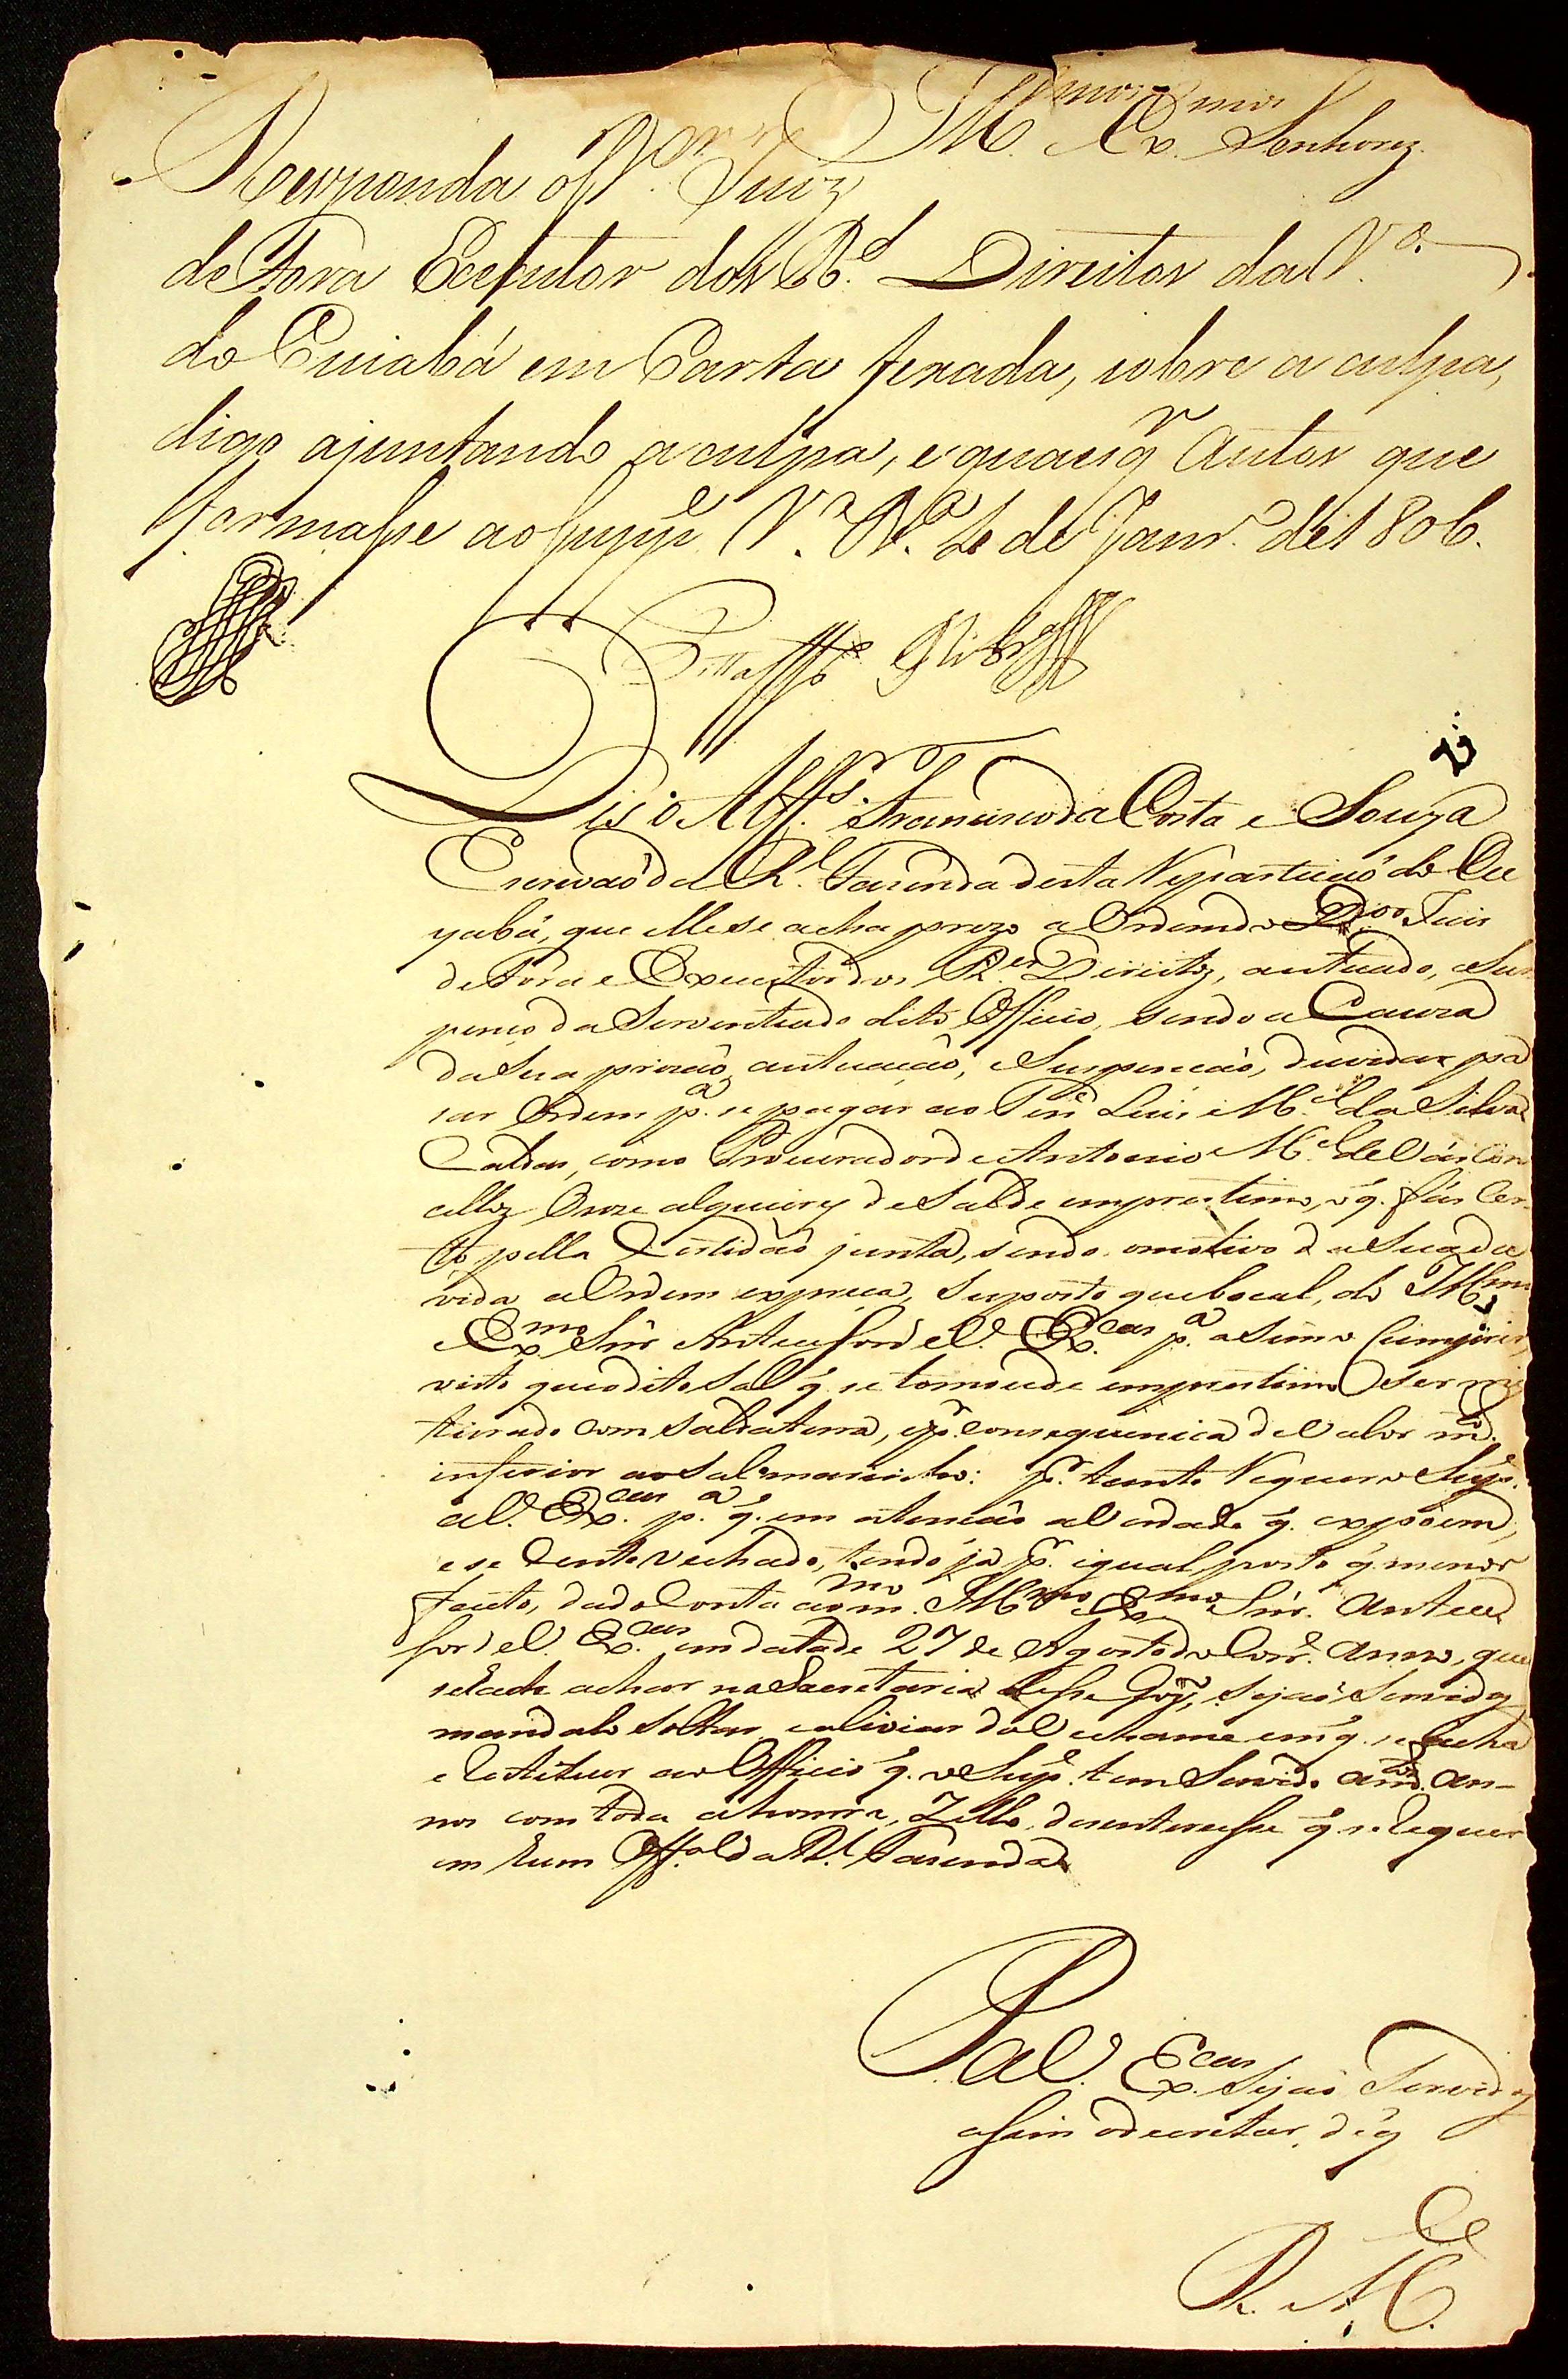 Ill.mos Ex.mos Senhorez
Responda o D.or Juiz
de Fora Executor dos R.s Direitos da V.a
do Cuiabá em Carta fexada, sobre a culpa,
digo ajuntando a culpa, e quaesq.r Autos que
formasse ao supp.e V.a B.a de Janr.o de 1806.
Dis o Alf.s Francisco da Costa e Souza
Escrivaõ da R.l Fasenda desta Repartiçaõ do Cu
yabá, que elle se acha prezo a Ordem do D.or Juis
de Fora e Executor dos R.es Direitoz, autuado, e Sus
penço da Serventia do dito Officio, sendo a Cauza
da Sua prizaõ, autuaçaõ, e Suspençaõ, duvidar pa
sar Ordem p.a se pagar ao Ten.e Luis M.el da Silva
Caldas, como Procurador de Antonio M.el de Vascon
celloz Onze alqueirez de Sal de emprestimo, o q. fás Cer
to pella Certidaõ junta, sendo o motivo da Sua du
vida a Ordem expreça, suposto que bocal, do Ill.mo
e Ex.mo Snr Antecessor de V. Ex.cas p.a asim o Cumprir,
visto que o dito Sal q. se tomou de emprestimo ser mis
turado com Sal da terra, e p.r consequencia de valor m.to
inferior ao Sal marinho: p.r tanto Requer o Sup.e
a V. Ex.cas p.a q. em atençaõ a Verdade q. expoem,
e se Sente vechado, tendo já p.r igual, posto q. menor
facto, dado Conta ao m.mo Ill.mo e Ex.mo Snr. Anteces
sor de V. Ex.cas em data de 27 de Agosto do Corr.e anno, que
se hade achar na Secretaria desse Gov.o, sejaõ Servidoz
mandalo Soltar, e aliviar do Vechame em q. se acha
e Restituir ao Officio q. o Sup.e tem Servido a m.tos an-
nos com toda a honra, Zello, desenteresse q. se Requer
em hum Off.al da R.l Fasenda
P. a V. Ex.cas Sejaõ Servidoz
assim o decretar, de q
E
R. M.